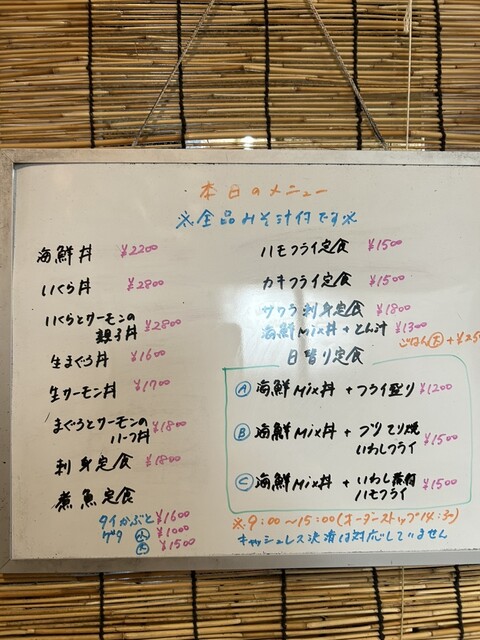 本日のメニュー
※全品みそ汁付です※
海鮮丼 ¥2200
いくら丼 ¥2800
いくらとサーモンの
親子丼 ¥2800
生まぐろ丼 ¥1600
生サーモン丼 ¥1700
まぐろとサーモンの
ハーフ丼 ¥1800
刺身定食 ¥1800
煮魚定食
タイかぶと ¥1600
ゲタ 小 ¥1000
大 ¥1500
ハモフライ定食 ¥1500
カキフライ定食 ¥1500
サワラ刺身定食 ¥1800
海鮮Mix丼+とん汁 ¥1300
ごはん大 +¥25
日替り定食
A 海鮮Mix丼 + フライ盛り ¥1200
B 海鮮Mix丼 + ブリてり焼
いわしフライ ¥1500
C 海鮮Mix丼 + いわし煮付
ハモフライ ¥1500
※9:00〜15:00(オーダーストップ14:30)
キャッシュレス決済は対応していません